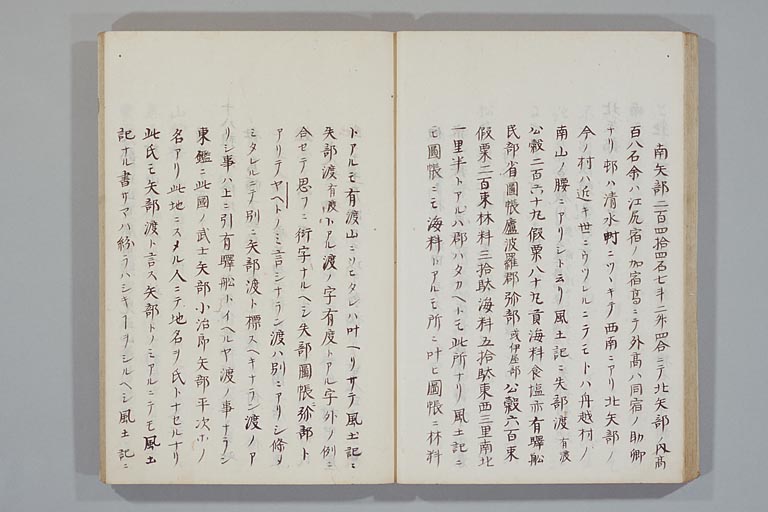 南矢部二百四拾四石七斗二升四合ニテ北矢部ノ内高
百八石余ハ江尻宿ノ加宿高ニテ外高ハ同宿ノ助郷
ナリ邨ハ清水町ニツヽキテ西南ニアリ北矢部ノ
今ノ村ハ近キ世ニウツレルニテモトハ舟越村ノ
南山ノ腰ニアリシト云リ風土記ニ矢部渡有渡
公穀二百六十九假粟八十九貢海料食塩亦有驛舩
民部省圖帳廬波羅郡弥部或伊屋部公穀六百束
假粟二百束林料三拾駄海料五拾駄東西三里南北
一里半トアルハ郡ハタカヘトモ此所ナリ風土記ニ
モ圖帳ニモ海料トアルモ所ニ叶ヒ圖帳ニ林料
トアルモ有渡山ニソヒタレハ叶ヘリサテ風土記ニ
矢部渡有渡トアル渡ノ字有度トアル字外ノ例ニ
合セテ思フニ衍字ナルヘシ矢部圖帳ニ弥部ト
アリテヤヘトノミ言シナラン渡ハ別ニアリシ條ノ
ミタレルニテ別ニ矢部渡ト標スヘキナラン渡ノア
リシ事ハ上ニ引有驛舩トイヘルヤ渡ノ事ナラン
東鑑ニ此國ノ武士矢部小治郎矢部平次ホノ
名アリ此地ニスメル人ニテ地名ヲ氏トナセルナリ
此氏モ矢部渡ト言ス矢部トノミアルニテモ風土
記ナル書サマハ紛ラハシキヿヲシルヘシ風土記ニ